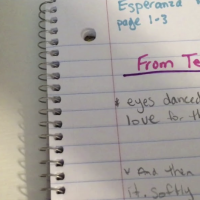 Esperanza
page 1-3
From Te
* eyes danced
love for th
v And then
it. softly